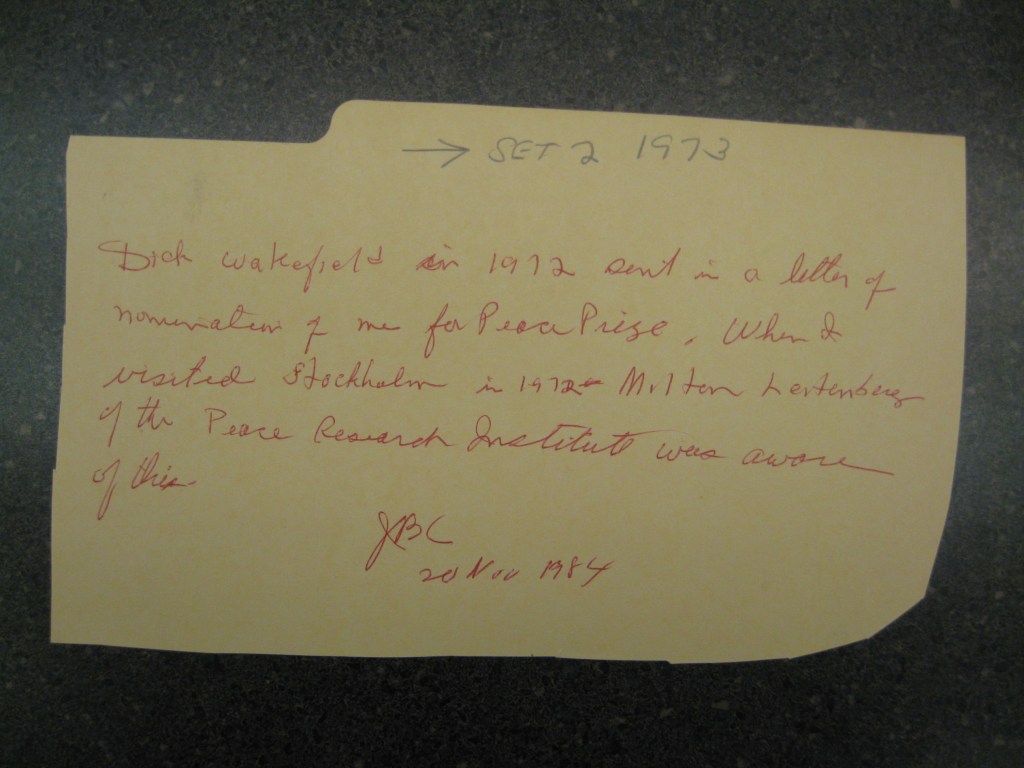 → SET 2 1973
Dick Wakefield in 1972 sent in a letter of
nomination of me for Peace Prize. When I
visited Stockholm in 1972 Milton Leitenberg
of the Peace Research Institute was aware
of this.
JBC
20 Nov 1984